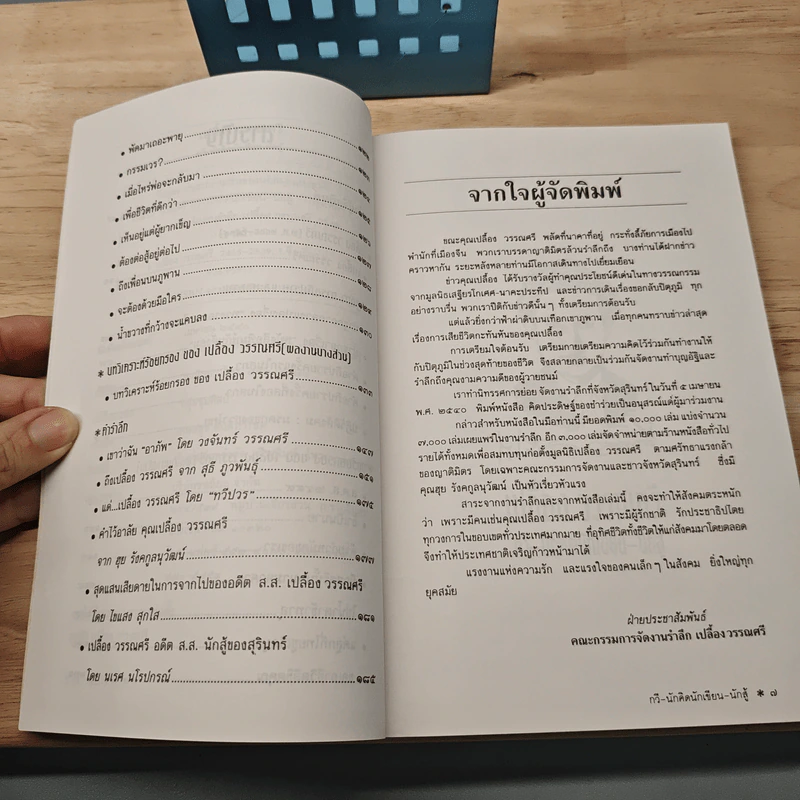 • พัดมาเถอะพายุ
• กรรมเวร?
• เมื่อไหร่พ่อจะกลับมา
• เพื่อชีวิตที่ดีกว่า
• เห็นอยู่แต่ผู้ยากเข็ญ
• ต้องต่อสู้อยู่ต่อไป ๑๒๗
• ถึงเพื่อนบนภูพาน ๑๒๘
• จะต้องด้วยมือใคร ๑๒๙
• น้ำขวางที่กว้างจะแคบลง ๑๓๐
* บทวิเคราะห์ร้อยกรอง ของ เปลื้อง วรรณศรี(ผลงานบางส่วน)
• บทวิเคราะห์ร้อยกรอง ของ เปลื้อง วรรณศรี ๑๓๓
*คำรำลึก
• เขาว่าฉัน "อาภัพ" โดย วงจันทร์ วรรณศรี ๑๔๗
• ถึงเปลื้อง วรรณศรี จาก สุธี ภูวพันธุ์ ๑๕๑
• แด่...เปลื้อง วรรณศรี โดย "ทวีปวร" ๑๗๕
• คำไว้อาลัย คุณเปลื้อง วรรณศรี
จาก ฮุย รังคกูลนุวัฒน์ ๑๗๗
• สุดแสนเสียดายในการจากไปของอดีต ส.ส. เปลื้อง วรรณศรี
โดย ไขแสง สุกใส ๑๘๑
• เปลื้อง วรรณศรี อดีต ส.ส. นักสู้ของสุรินทร์
โดย นเรศ นโรปกรณ์ ๑๘๕
จากใจผู้จัดพิมพ์
ขณะคุณเปลื้อง วรรณศรี พลัดที่นาคาที่อยู่ กระทั่งลี้ภัยการเมืองไป
พำนักที่เมืองจีน พวกเราบรรดาญาติมิตรล้วนรำลึกถึง บางท่านได้ฝากข่าว
คราวหากัน ระยะหลังหลายท่านมีโอกาสเดินทางไปเยี่ยมเยือน
ข่าวคุณเปลื้อง ได้รับรางวัลผู้ทำคุณประโยชน์ดีเด่นในทางวรรณกรรม
จากมูลนิธิเสฐียรโกเศศ-นาคะประทีป และข่าวการเดินเรื่องขอกลับปิตุภูมิ ทุก
อย่างราบรื่น พวกเราปิติกับข่าวดีนั้น ๆ ทั้งเตรียมการต้อนรับ
แต่แล้วยิ่งกว่าฟ้าผ่าดิบบนเทือกเขาภูพาน เมื่อทุกคนทราบข่าวล่าสุด
เรื่องการเสียชีวิตกะทันหันของคุณเปลื้อง
การเตรียมใจต้อนรับ เตรียมกายเตรียมความคิดไว้ร่วมกันทำงานให้
กับปิตุภูมิในช่วงสุดท้ายของชีวิต จึงสลายกลายเป็นร่วมกันจัดงานทำบุญอัฐิและ
รำลึกถึงคุณงามความดีของผู้วายชนม์
เราทำนิทรรศการย่อย จัดงานรำลึกที่จังหวัดสุรินทร์ ในวันที่ ๕ เมษายน
พ.ศ. ๒๕๔๐ พิมพ์หนังสือ คิดประดิษฐ์ของชำร่วยเป็นอนุสรณ์แด่ผู้มาร่วมงาน
กล่าวสำหรับหนังสือในมือท่านนี้ มียอดพิมพ์ ๑๐,๐๐๐ เล่ม แบ่งจำนวน
๗,๐๐๐ เล่มเผยแพร่ในงานรำลึก อีก ๓,๐๐๐ เล่มจัดจำหน่ายตามร้านหนังสือทั่วไป
รายได้ทั้งหมดเพื่อสมทบทุนก่อตั้งมูลนิธิเปลื้อง วรรณศรี ตามศรัทธาแรงกล้า
ของญาติมิตร โดยเฉพาะคณะกรรมการจัดงานและชาวจังหวัดสุรินทร์ ซึ่งมี
คุณฮุย รังคกูลนุวัฒน์ เป็นหัวเรี่ยวหัวแรง
สาระจากงานรำลึกและจากหนังสือเล่มนี้ คงจะทำให้สังคมตระหนัก
ว่า เพราะมีคนเช่นคุณเปลื้อง วรรณศรี เพราะมีผู้รักชาติ รักประชาธิปไตย
ทุกวงการในขอบเขตทั่วประเทศมากมาย ที่อุทิศชีวิตทั้งชีวิตให้แก่สังคมมาโดยตลอด
จึงทำให้ประเทศชาติเจริญก้าวหน้ามาได้
แรงงานแห่งความรัก และแรงใจของคนเล็กๆ ในสังคม ยิ่งใหญ่ทุก
ยุคสมัย
ฝ่ายประชาสัมพันธ์
คณะกรรมการจัดงานรำลึก เปลื้อง วรรณศรี
กวี-นักคิดนักเขียน-นักสู้ * ๗